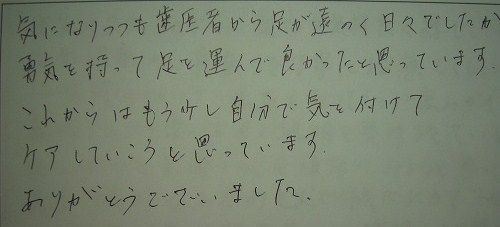 気になりつつも歯医者から足が遠のく日々でしたが
勇気を持って足を運んで良かったと思っています.
これからはもう少し自分で気を付けて
ケアしていこうと思っています.
ありがとうございました.